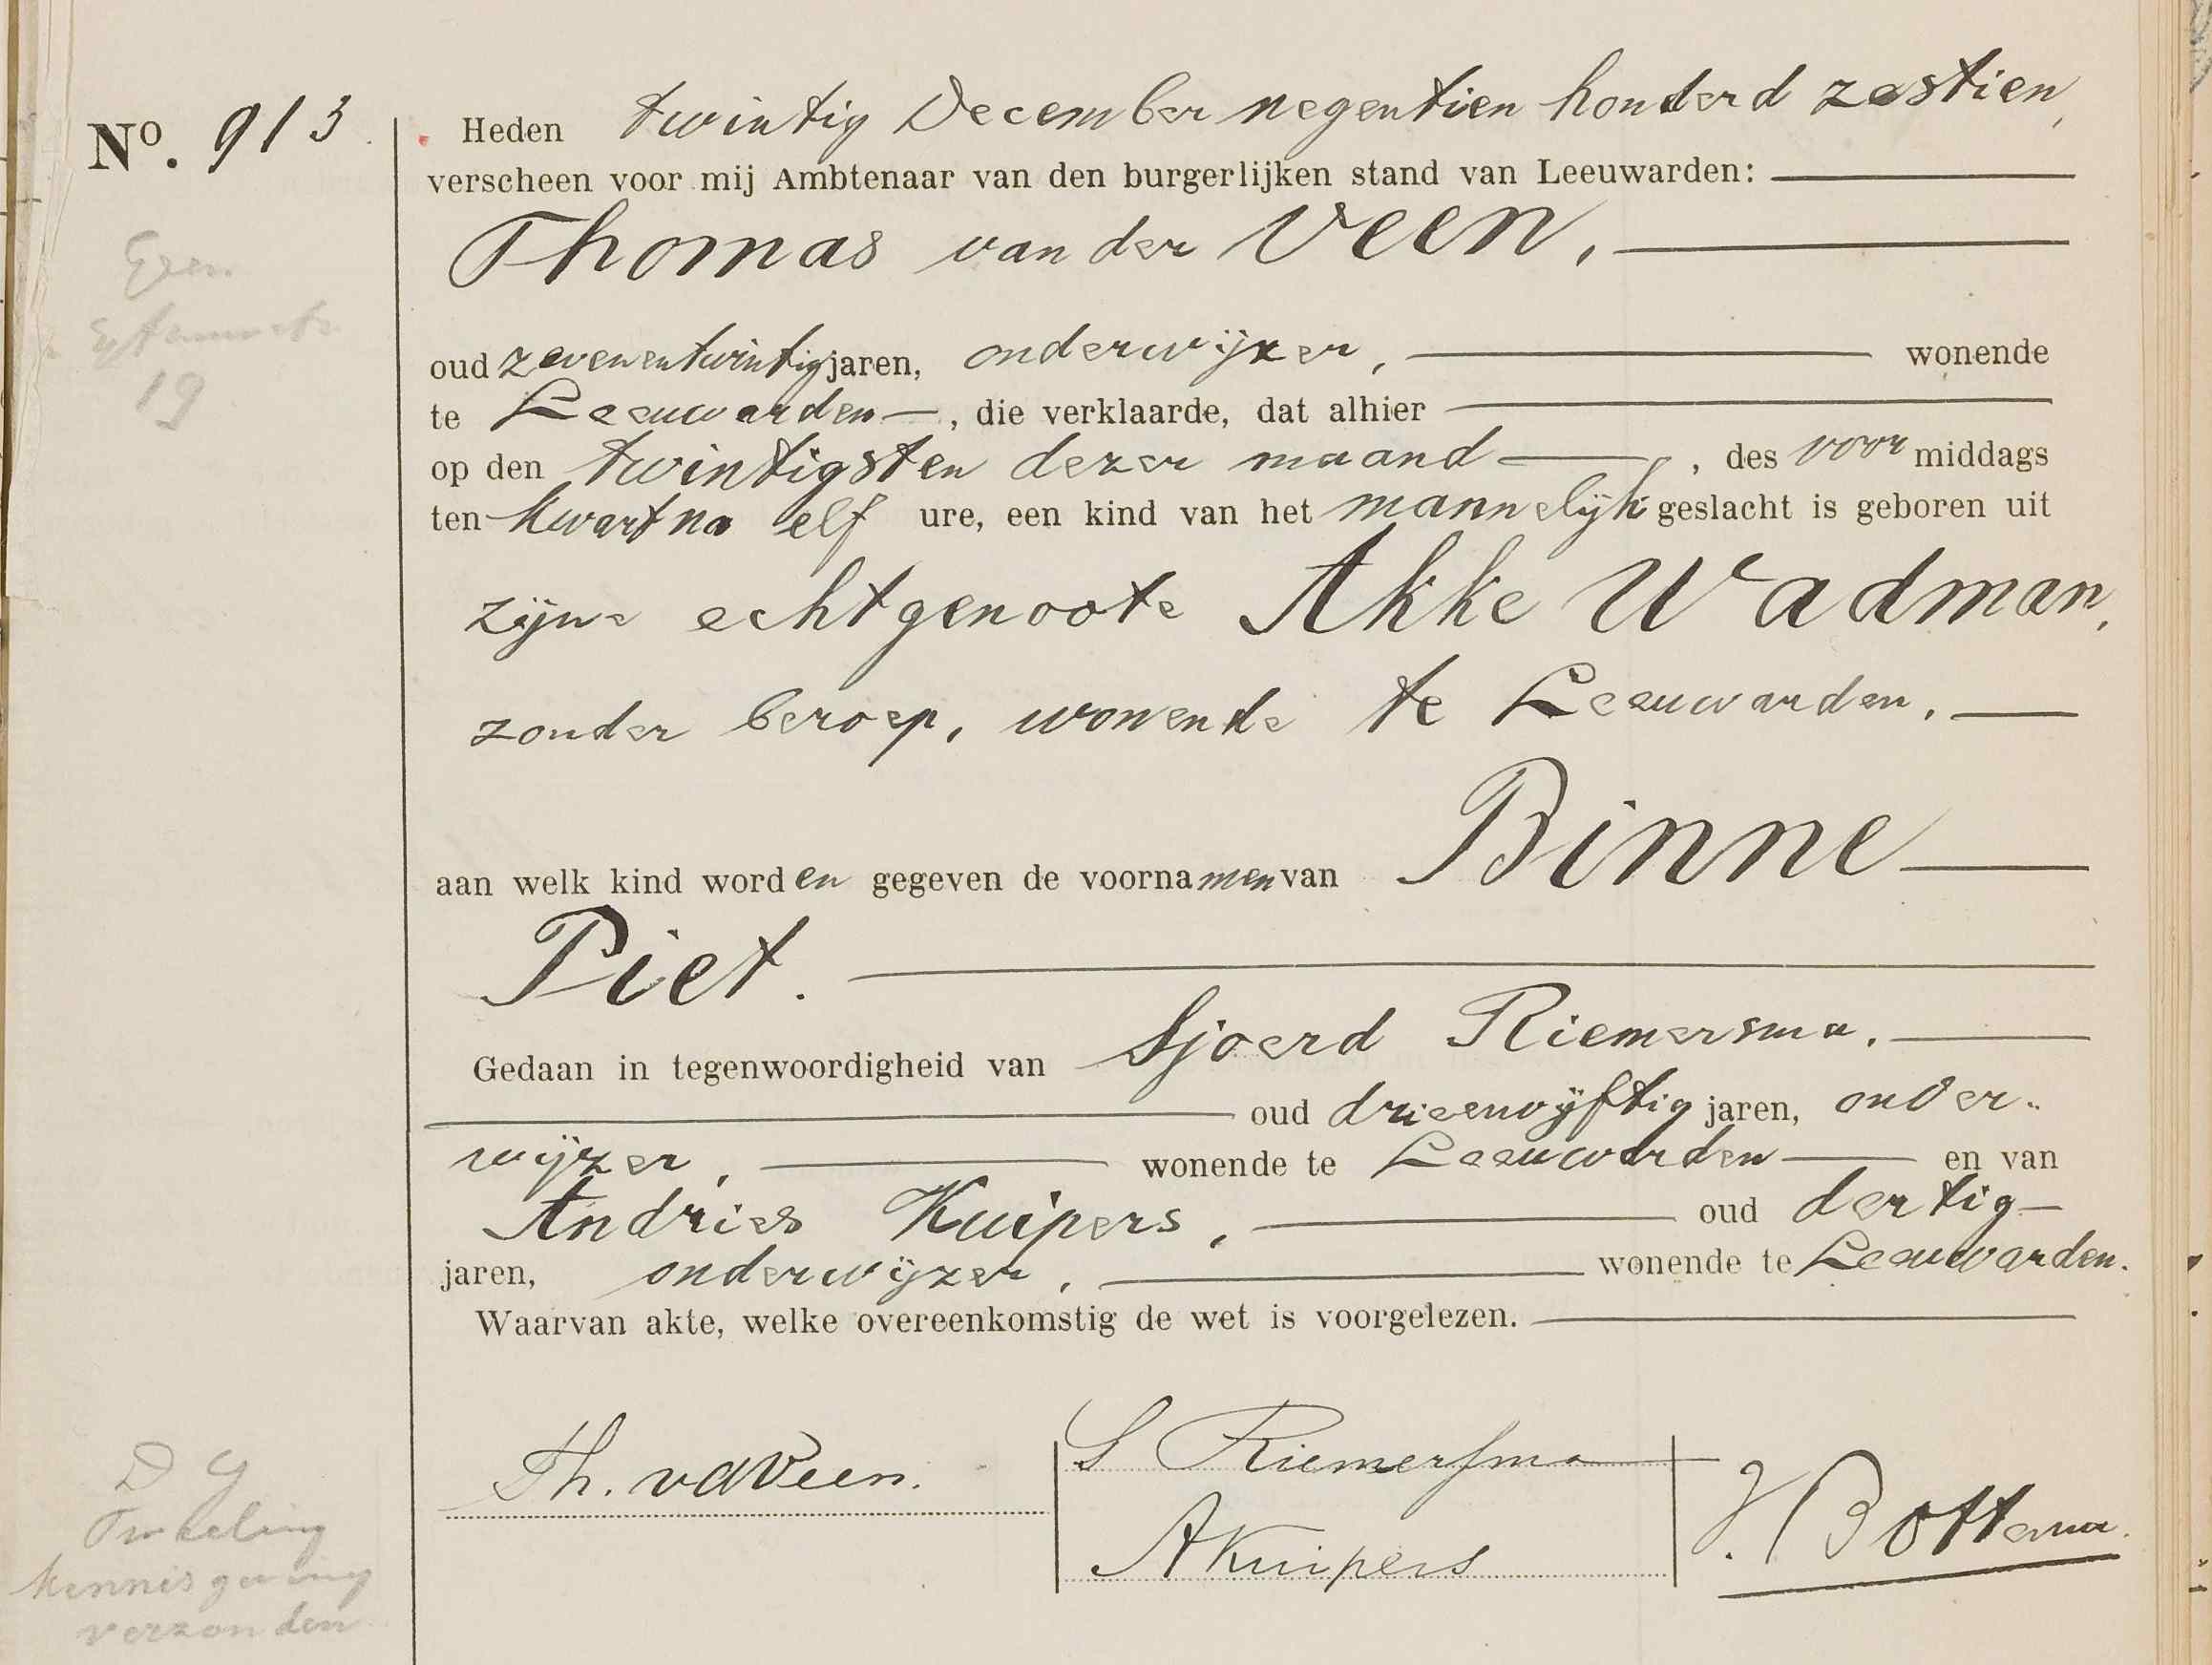 No. 913
Heden twintig December negentien honderd zestien,
verscheen voor mij Ambtenaar van den burgerlijken stand van Leeuwarden:
Thomas van der Veen,
oud zevenentwintig jaren, onderwijzer, wonende
te Leeuwarden, die verklaarde, dat alhier
op den twintigsten dezer maand, des voormiddags
ten kwart na elf ure, een kind van het mannelijk geslacht is geboren uit
zijne echtgenoote Akke Wadman,
zonder beroep, wonende te Leeuwarden,
aan welk kind worden gegeven de voornamen van Binne
Piet.
Gedaan in tegenwoordigheid van Sjoerd Riemersma,
oud drieenvijftig jaren, onder-
wijzer, wonende te Leeuwarden en van
Andries Kuipers, oud dertig
jaren, onderwijzer, wonende te Leeuwarden.
Waarvan akte, welke overeenkomstig de wet is voorgelezen.
Th. vdVeen.
S Riemersma
AKuipers
J. Bottema.
19
kennisgeving
verzonden